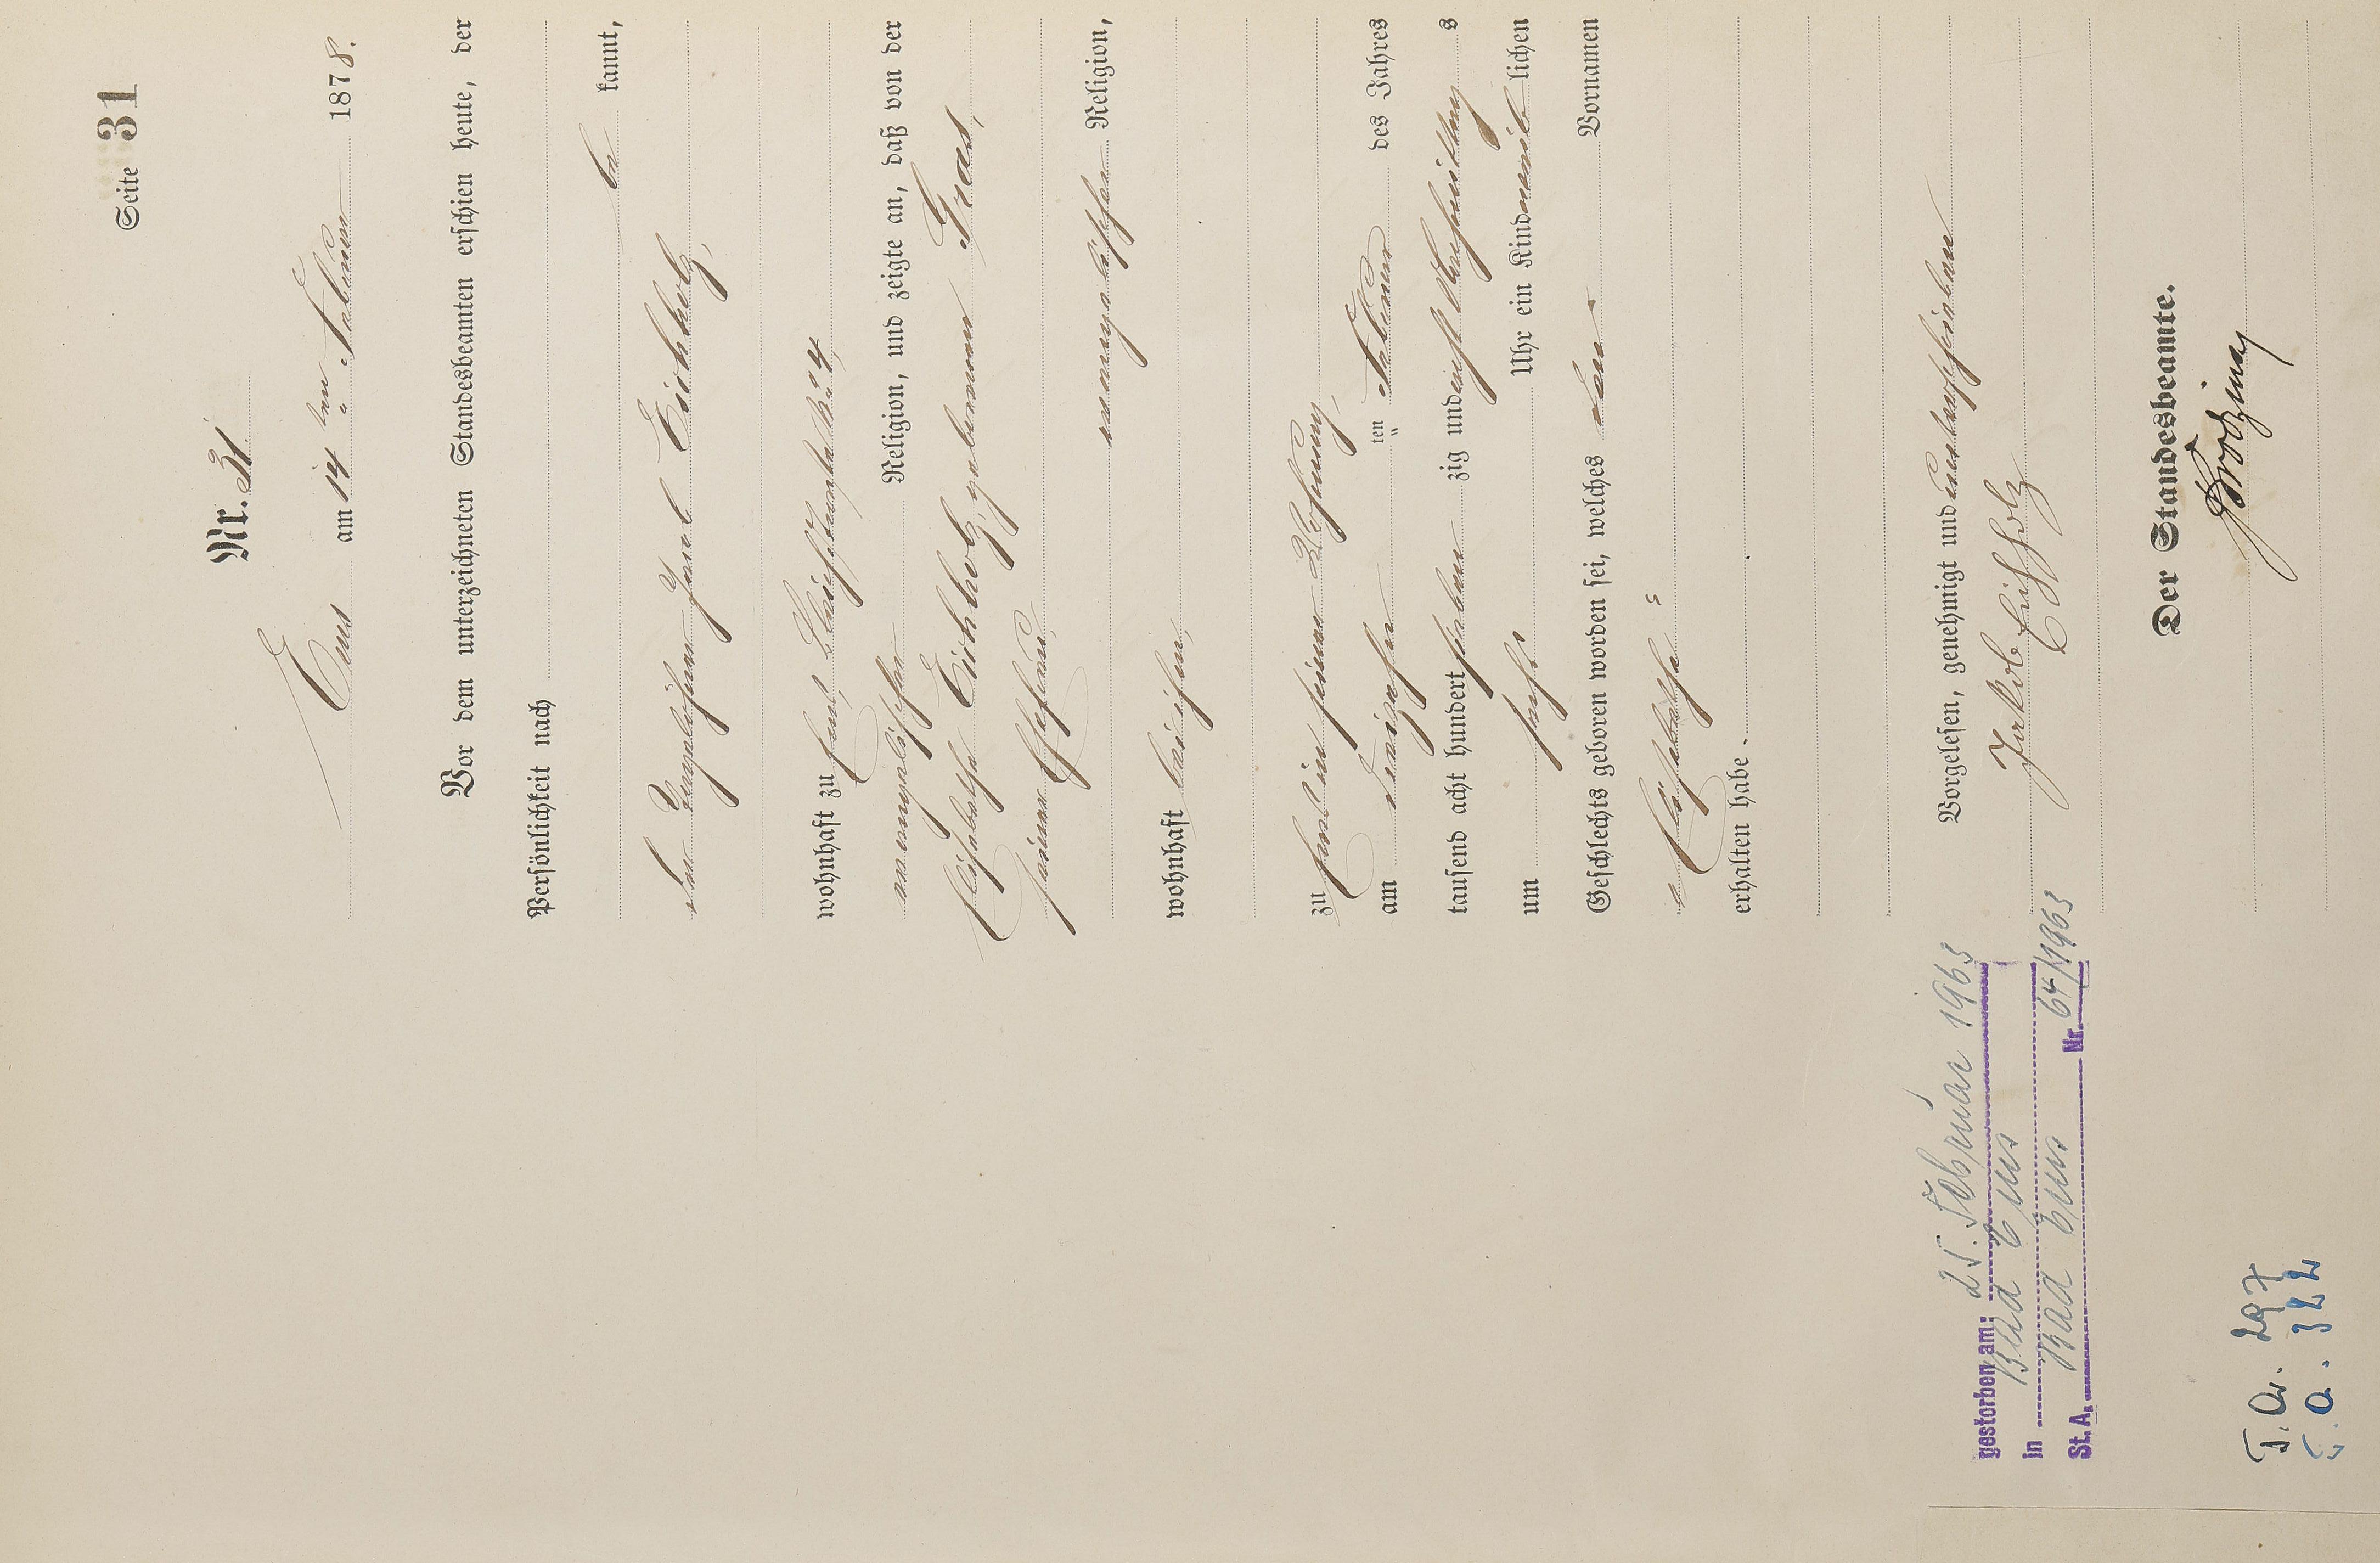 Seite 31
Nr. 31.
Ems am 14 ten Februar 1878.
Vor dem unterzeichneten Standesbeamten erschien heute, der
Persönlichkeit nach
be kannt,
der Jakob Eichholz,
wohnhaft zu Ems, No. 4,
evangelischer Religion, und zeigte an, daß von der
Elisabetha Eichholz, geborenen Gras,
seiner Ehefrau,
evangelischer Religion,
wohnhaft bei ihm,
zu Ems in seiner Wohnung,
am dreizehn ten Februar des Jahres
tausend acht hundert siebenzig und acht Vormittags
um sechs Uhr ein Kind weiblichen
Geschlechts geboren worden sei, welches den Vornamen
Elisabetha
erhalten habe.
Vorgelesen, genehmigt und unterschrieben
Jakob Eichholz
Der Standesbeamte.
gestorben am: 25. Februar 1963
in Bad Ems
St. A. Bad Ems Nr. 64/1963
T. A. 297
T. A. 322